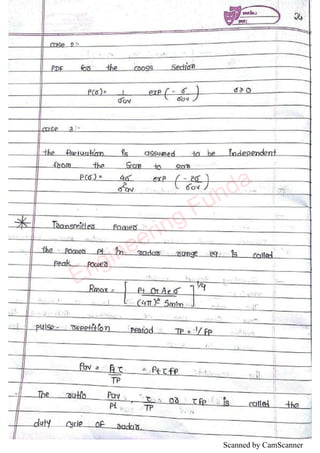 24
case 2:-
PDF for the cross section
P(σ) = 1/σav exp (- σ/σav) σ≥0
case 3:-
the fluctuation is assumed to be independent
from the scan to scan
P(σ) = 4σ/σ²av exp (- 2σ/σav)
* Transmitter Power
the Power Pt in radar range eq. is called
peak power
Rmax = [Pt G Ae σ / (4π)² Smin]^1/4
pulse- repetition period TP = 1/fp
Pav = Pt τ / TP = Pt τ fp
The ratio Pav/Pt, τ/TP or τfp is called the
duty cycle of radar.
Engineering Funda
Scanned by CamScanner